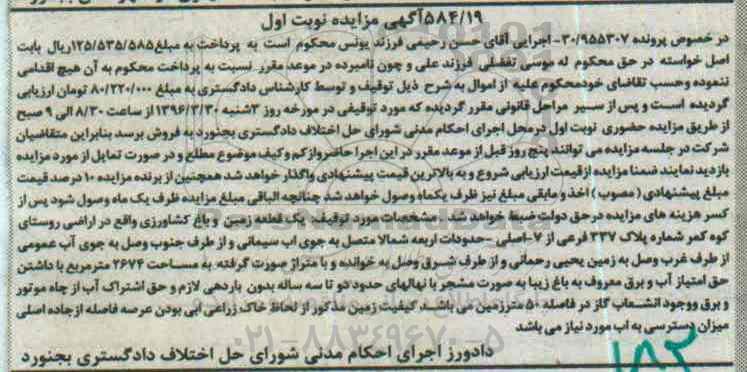 ۵۸۴/۱۹آگهی مزایده نوبت اول
در خصوص پرونده ۳۰/۹۵۵۳۰۷-اجرایی آقای حسن رحیمی فرزند یونس محکوم است به پرداخت به مبلغ۱۲۵/۵۳۵/۵۸۵ریال بابت
اصل خواسته در حق محکوم له موسی تفضلی فرزند علی و چون نامبرده در موعد مقرر نسبت به پرداخت محکوم به آن هیچ اقدامی
ننموده وحسب تقاضای خودمحکوم علیه از اموال به شرح ذیل توقیف و توسط کارشناس دادگستری به مبلغ ۸۰/۲۲۰/۰۰۰ تومان ارزیابی
گردیده است و پس از سیر مراحل قانونی مقرر گردیده که مورد توقیفی در مورخه روز ۳شنبه ۱۳۹۶/۳/۳۰از ساعت ۸/۳۰ الی ۹ صبح
از طریق مزایده حضوری نوبت اول درمحل اجرای احکام مدنی شورای حل اختلاف دادگستری بجنورد به فروش برسد بنابراین متقاضیان
شرکت در جلسه مزایده می توانند پنج روز قبل از موعد مقرر در این اجرا حاضرواز کم وکیف موضوع مطلع و در صورت تمایل از مورد مزایده
بازدید نمایند ضمنا مزایده از قیمت ارزیابی شروع و به بالاترین قیمت پیشنهادی واگذار خواهد شد همچنین از برنده مزایده ۱۰ درصد قیمت
مبلغ پیشنهادی (مصوب) اخذ و مابقی مبلغ نیز ظرف یکماه وصول خواهد شد چنانچه الباقی مبلغ مزایده ظرف یک ماه وصول شود پس از
کسر هزینه های مزایده در حق دولت ضبط خواهد شد مشخصات مورد توقیف یک قطعه زمین و باغ کشاورزی واقع در اراضی روستای
کوه کمر شماره پلاک ۳۳۷ فرعی از ۷-اصلی -حدودات اربعه شمالا متصل به جوی اب سیمانی و از طرف جنوب وصل به جوی آب عمومی
از طرف غرب وصل به زمین یحیی رحمانی و از طرف شرق وصل به خوانده و با متراژ صورت گرفته به مساحت ۲۶۷۴ مترمربع با داشتن
حق امتیاز آب و برق معروف به باغ زیبا به صورت مشجر با نهالهای حدود دو تا سه ساله بدون باردهی لازم و حق اشتراک آب از چاه موتور
و برق ووجود انشعاب گاز در فاصله ۵۰ مترزمین می باشد کیفیت زمین مذکور از لحاظ خاک زراعی ابی بودن عرصه فاصله ازجاده اصلی
میزان دسترسی به اب مورد نیاز می باشد
دادورز اجرای احکام مدنی شورای حل اختلاف دادگستری بجنورد
۱۸۲
۰۲۱-۸۸۳۴۹۶۷۰-۵